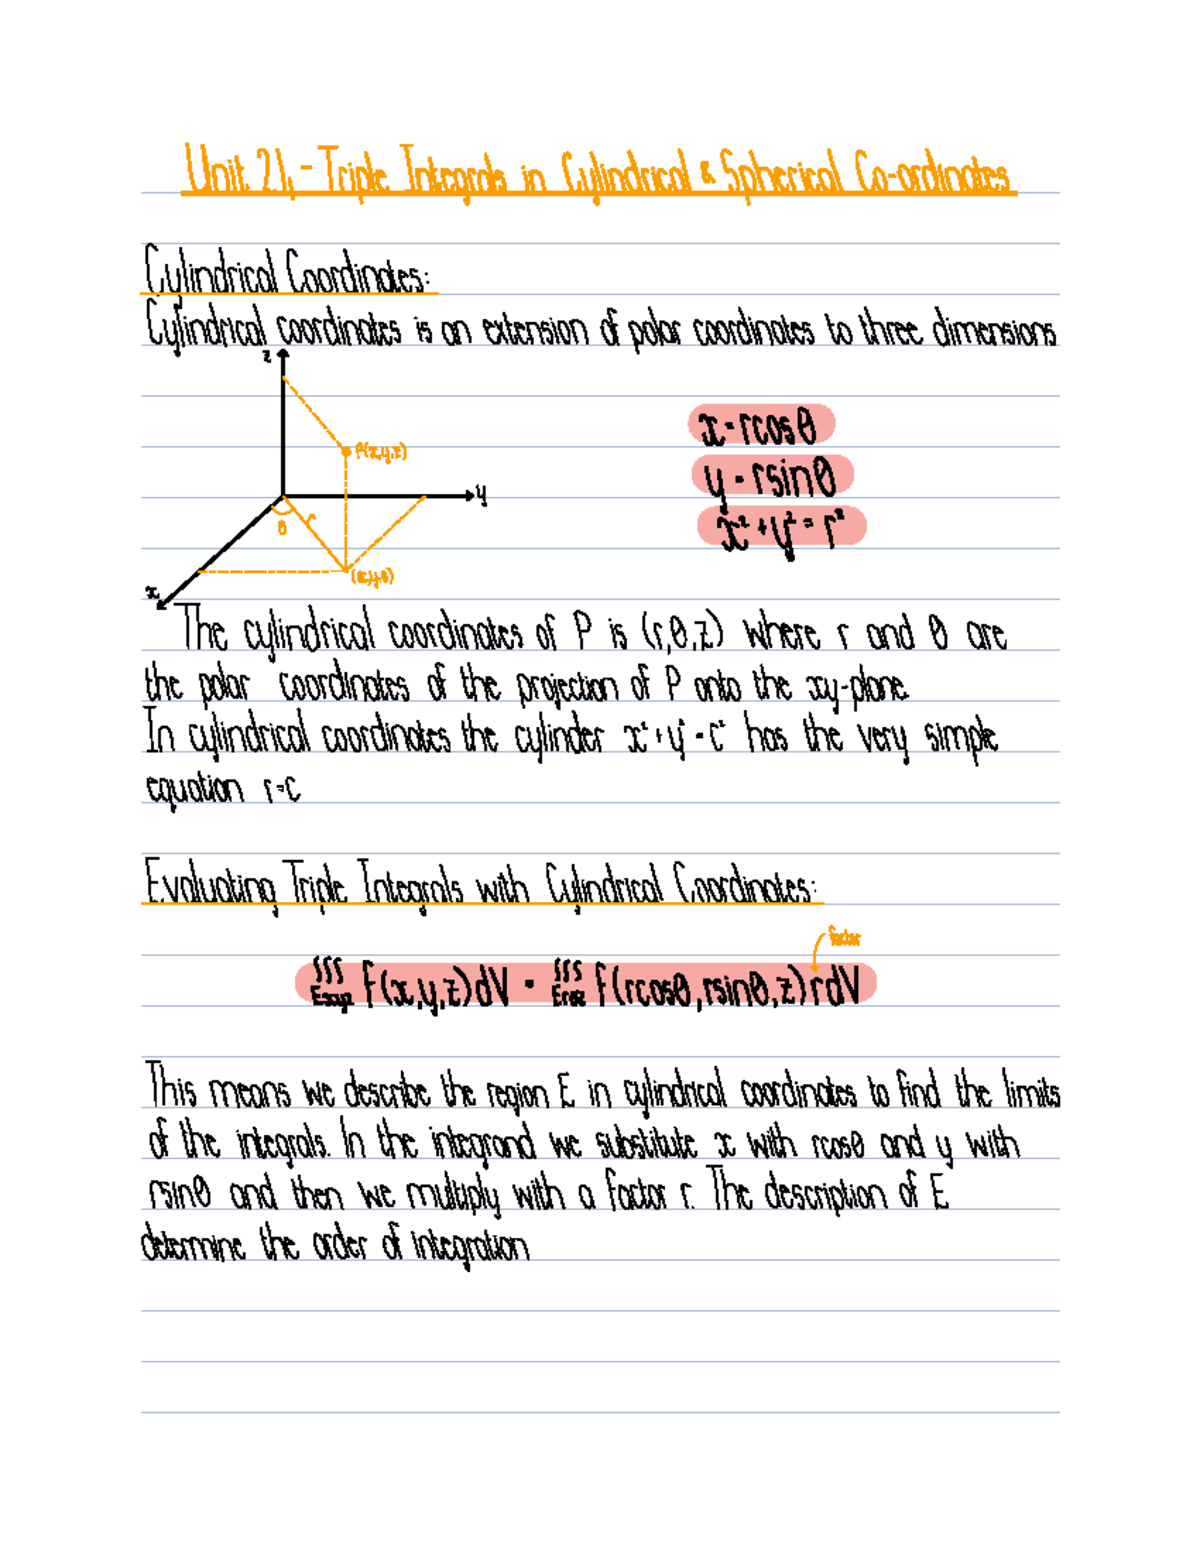 Unit 2.4 - Triple Integrals in Cylindrical & Spherical Co-ordinates
Cylindrical Coordinates:
Cylindrical coordinates is an extension of polar coordinates to three dimensions
z
P(x,y,z)
y
θ
r
(x,y,0)
x
x = rcosθ
y = rsinθ
x² + y² = r²
The cylindrical coordinates of P is (r,θ,z) where r and θ are
the polar coordinates of the projection of P onto the xy-plane.
In cylindrical coordinates the cylinder x² + y² = c² has the very simple
equation r=c
Evaluating Triple Integrals with Cylindrical Coordinates:
factor
∭Exyz f(x,y,z)dV = ∭Erθz f(rcosθ,rsinθ,z)rdV
This means we describe the region E in cylindrical coordinates to find the limits
of the integrals. In the integrand we substitute x with rcosθ and y with
rsinθ and then we multiply with a factor r. The description of E
determine the order of integration